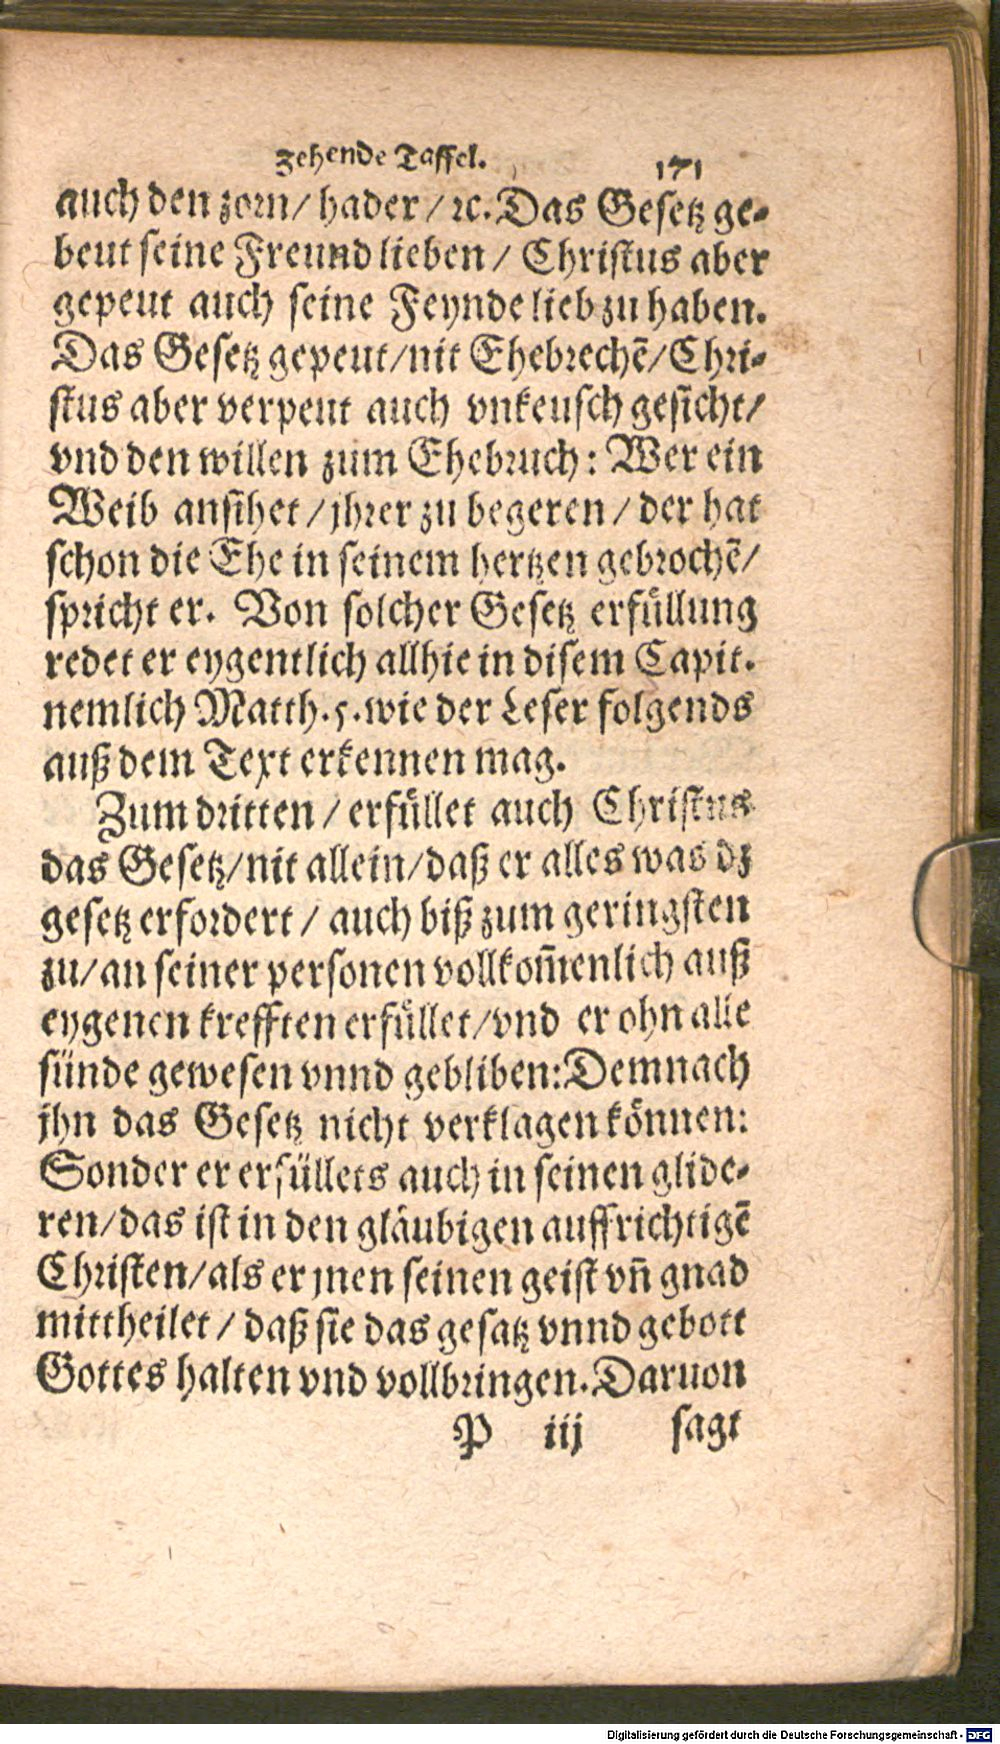 Zehende Taffel. 171
auch den zorn/ hader/ ꝛc. Das Gesetz ge-
beut seine Freund lieben/ Christus aber
gepeut auch seine Feynde lieb zu haben.
Das Gesetz gepeut/ nit Ehebrechẽ/ Chri-
stus aber verpeut auch vnkeusch gesicht/
vnd den willen zum Ehebruch: Wer ein
Weib ansihet/ jhrer zu begeren/ der hat
schon die Ehe in seinem hertzen gebrochẽ/
spricht er. Von solcher Gesetz erfüllung
redet er eygentlich allhie in disem Capit.
nemlich Matth. 5. wie der Leser folgends
auß dem Text erkennen mag.
Zum dritten/ erfüllet auch Christus
das Gesetz/ nit allein/ daß er alles was dz
gesetz erfordert/ auch biß zum geringsten
zu/ an seiner personen vollkom̃enlich auß
eygenen krefften erfüllet/ vnd er ohn alle
sünde gewesen vnnd gebliben: Demnach
jhn das Gesetz nicht verklagen können:
Sonder er erfüllets auch in seinen glide-
ren/ das ist in den gläubigen auffrichtigẽ
Christen/ als er jnen seinen geist vn̄ gnad
mittheilet/ daß sie das gesatz vnnd gebott
Gottes halten vnd vollbringen. Daruon
P iij sagt
Digitalisierung gefördert durch die Deutsche Forschungsgemeinschaft - DFG